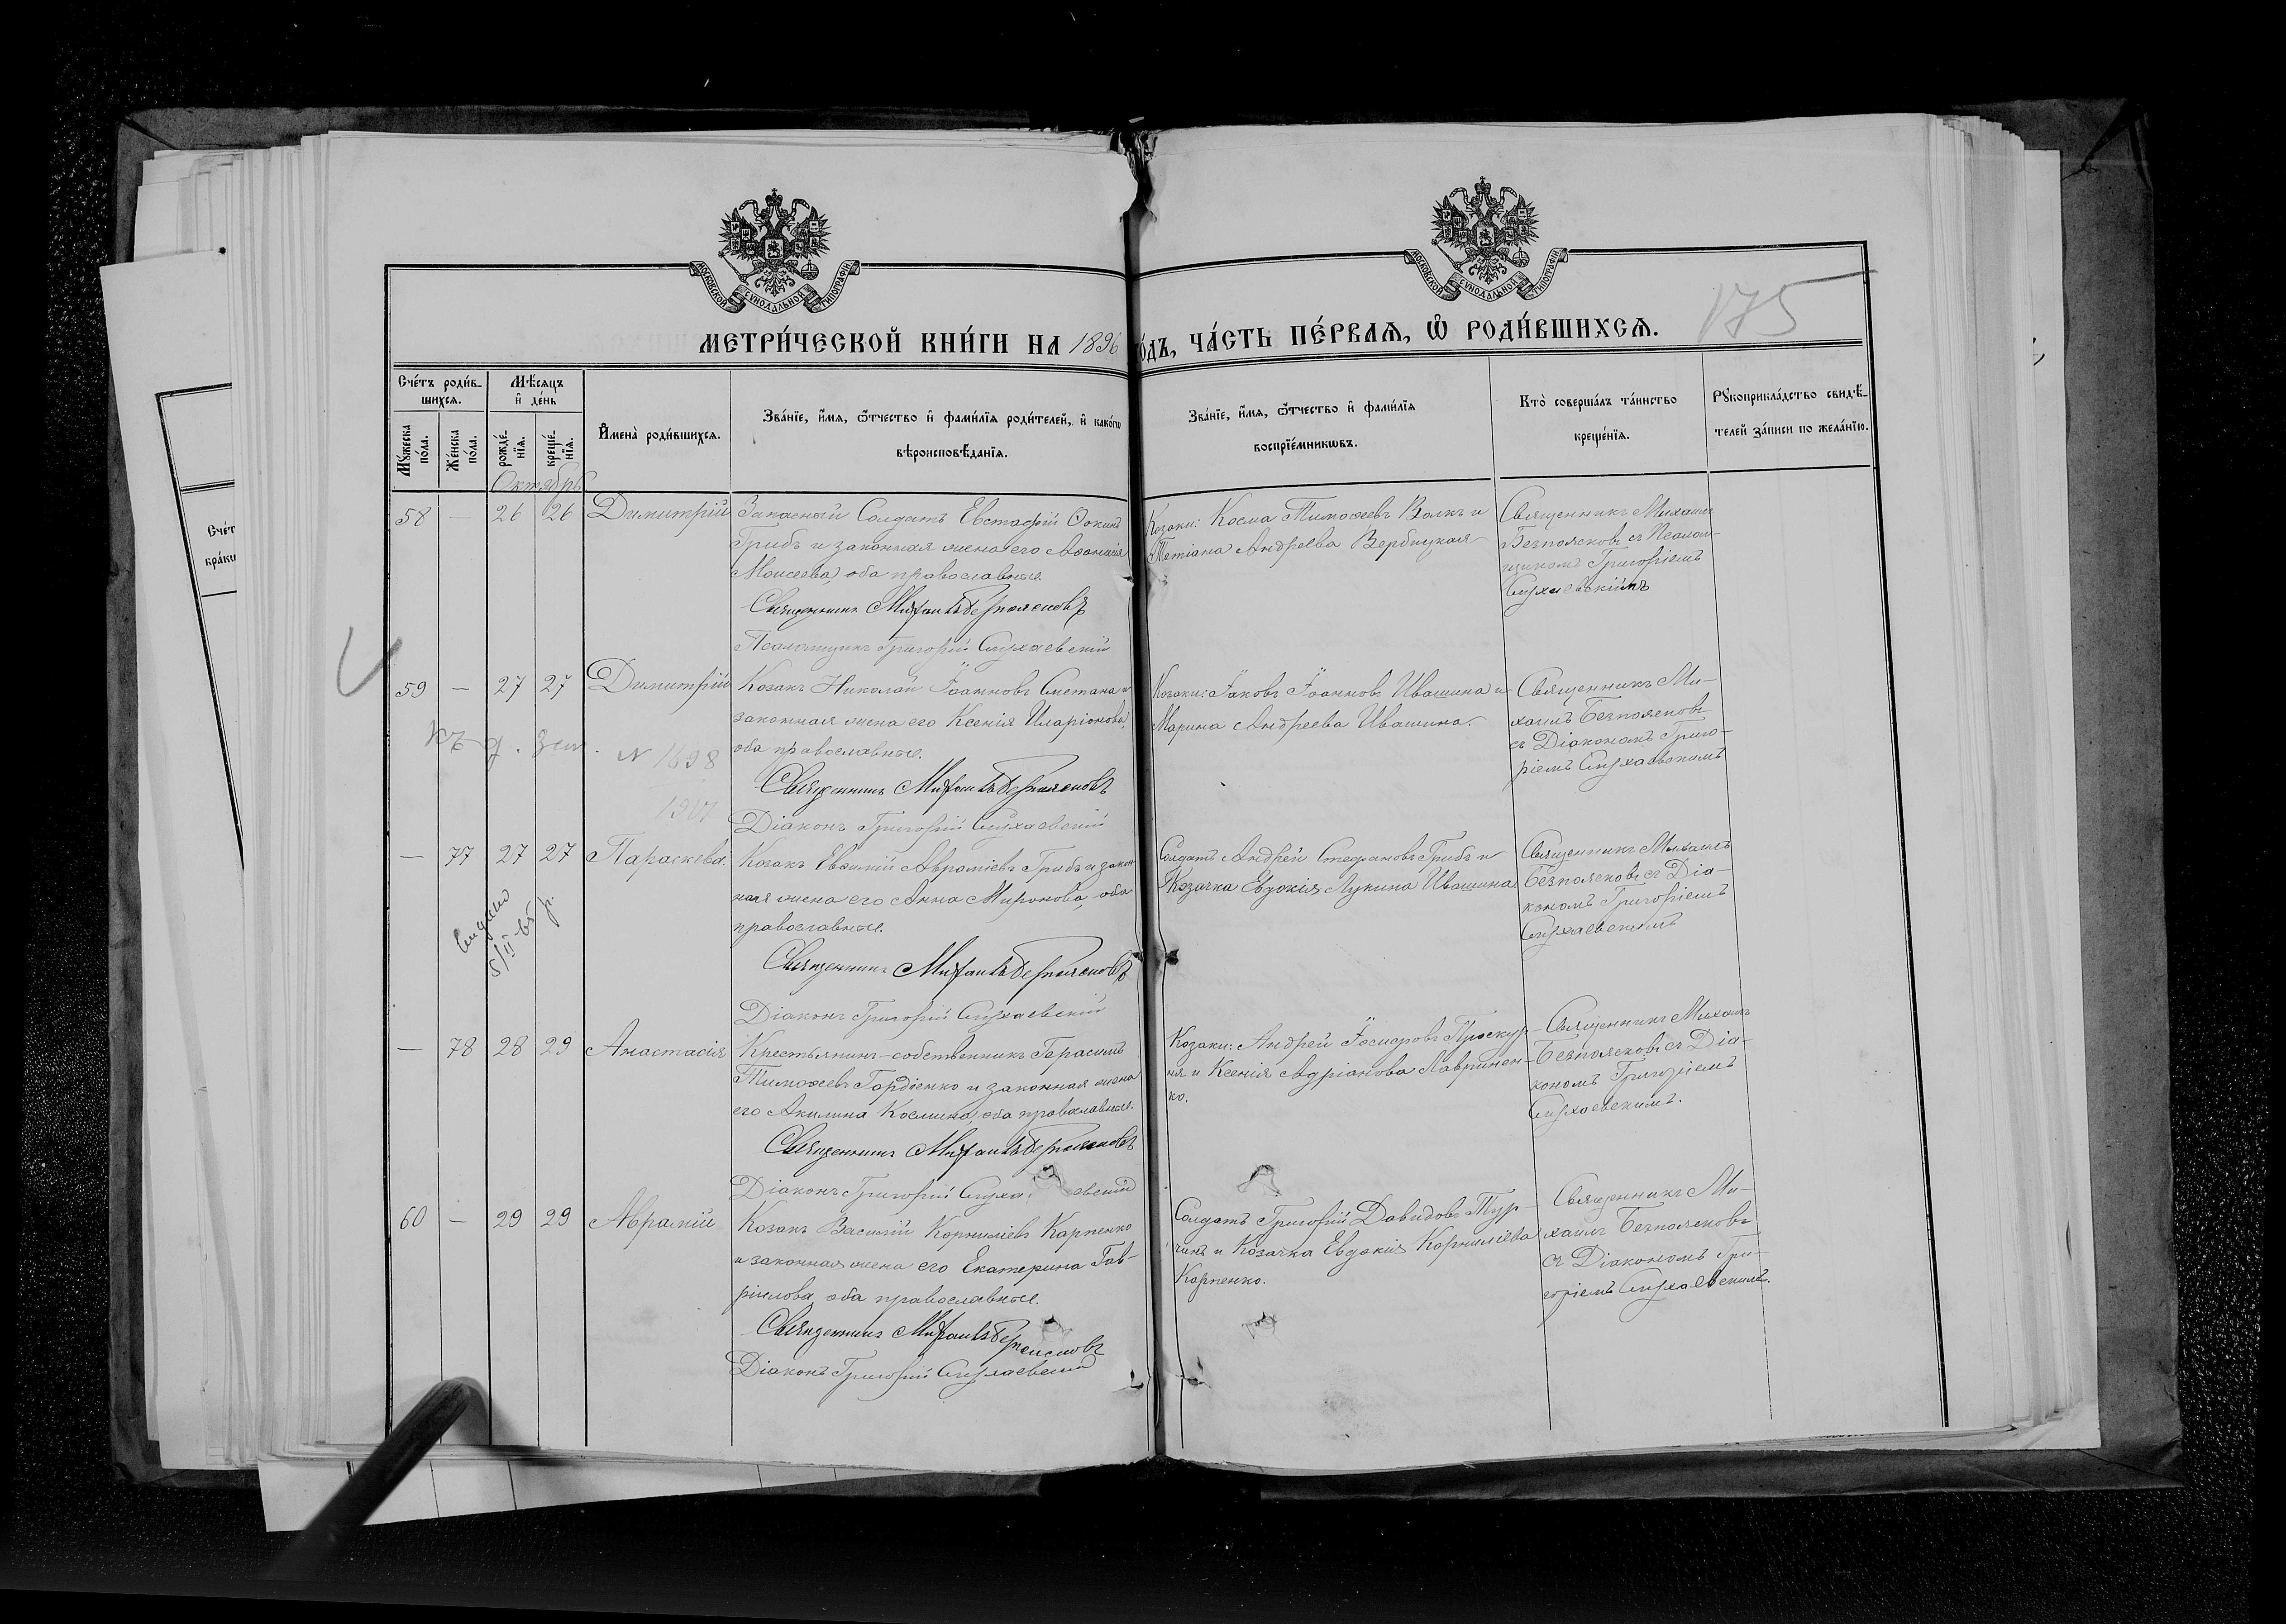 МОСКОВСКОЙ СѴНОДАЛЬНОЙ ТИПОГРАФІИ
МОСКОВСКОЙ СѴНОДАЛЬНОЙ ТИПОГРАФІИ
175
МЕТРИ́ЧЕСКОЙ КНИ́ГИ НА 1896 ГО́ДЪ, ЧА́СТЬ ПЕ́РВАЯ, Ѡ҆ РОДИ́ВШИХСЯ.
Сче́тъ роди́в-
шихся.
Мꙋжеска по́ла.
Же́нска по́ла.
Мѣ́сяцъ
и҆ де́нь
рожде́-
нїя.
креще́-
нїя.
И҆мена̀ роди́вшихся.
Зва́нїе, и҆́мя, ѻ҆́тчество и҆ фами́лїя роди́телей, и҆ како́гѡ
вѣроисповѣ́данїя.
Зва́нїе, и҆́мя, ѻ҆́тчество и҆ фами́лїя
воспрїе́мниковъ.
Кто̀ соверша́лъ та́инство
креще́нїя.
Рꙋкоприкла́дство свидѣ́-
телей за́писи по жела́нїю.
Октябрь
58 — 26 26 Димитрій
Запасный Солдатъ Евстафій Ѳокинъ
Грибъ и законная жена его Аѳанасія
Моисеева, оба православные.
Священникъ Михаилъ Безпоясковъ
Псаломщикъ Григорій Слухаевскій
Козаки: Косма Тимоѳеевъ Волкъ и
Татіана Андреева Вербицкая
Священникъ Михаилъ
Безпоясковъ съ Псалом-
щикомъ Григоріемъ
Слухаевскимъ
59 — 27 27 Димитрій
Козакъ Николай Іоанновъ Сметана и
законная жена его Ксенія Иларіонова,
оба православные.
Священникъ Михаилъ Безпоясковъ
Діаконъ Григорій Слухаевскій
Козаки: Іаковъ Іоанновъ Ивашина и
Марина Андреева Ивашина
Священникъ Ми-
хаилъ Безпоясковъ
съ Діакономъ Григо-
ріемъ Слухаевскимъ
N 1898
1901
— 77 27 27 Параскева.
Козакъ Евѳимій Авраміевъ Грибъ и закон-
ная жена его Анна Миронова, оба
православные.
Священникъ Михаилъ Безпоясковъ
Діаконъ Григорій Слухаевскій
Солдатъ Андрей Стефановъ Грибъ и
Козачка Евдокія Лукина Ивашина
Священникъ Михаилъ
Безпоясковъ съ Діа-
кономъ Григоріемъ
Слухаевскимъ
видано
5/II 65 р.
— 78 28 29 Анастасія
Крестьянинъ-собственникъ Герасимъ
Тимоѳеевъ Гордіенко и законная жена
его Акилина Космина, оба православные.
Священникъ Михаилъ Безпоясковъ
Діаконъ Григорій Слухаевскій
Козаки: Андрей Іосифовъ Проскур-
ня и Ксенія Адріанова Лавринен-
ко.
Священникъ Михаилъ
Безпоясковъ съ Діа-
кономъ Григоріемъ
Слухаевскимъ.
60 — 29 29 Аврамій
Козакъ Василій Корниліевъ Карпенко
и законная жена его Екатерина Гав-
ріилова, оба православные.
Священникъ Михаилъ Безпоясковъ
Діаконъ Григорій Слухаевскій
Солдатъ Григорій Давидовъ Тур-
чинъ и Козачка Евдокія Корниліева
Карпенко.
Священникъ Ми-
хаилъ Безпоясковъ
съ Діакономъ Гри-
горіемъ Слухаевскимъ.
Сче́т
бра́ки